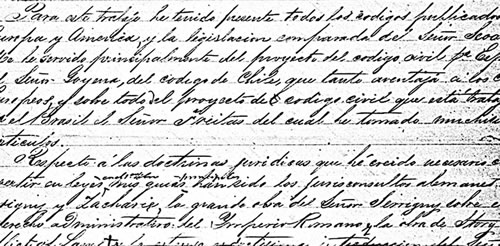 Para este trabajo he tenido presente todos los codigos publicados
Europa y America, y la legislacion comparada del Señor Seoa
Me he servido principalmente del proyecto del codigo civil pa Esp
el Señor Goyena, del codigo de Chile, que tanto aventaja a los
Europeos, y sobre todo, del proyecto de codigo civil que está trab
el Brasil el Señor Freitas del cual he tomado muchís
articulos.
Respecto a las doctrinas juridicas que he creido necesario
vertir en leyes, mis guias han sido los jurisconsultos alemanes
vigny y Zacharie, la grande obra del Señor Serrigny sobre
derecho administrativo del Imperio Romano, y la obra de Story